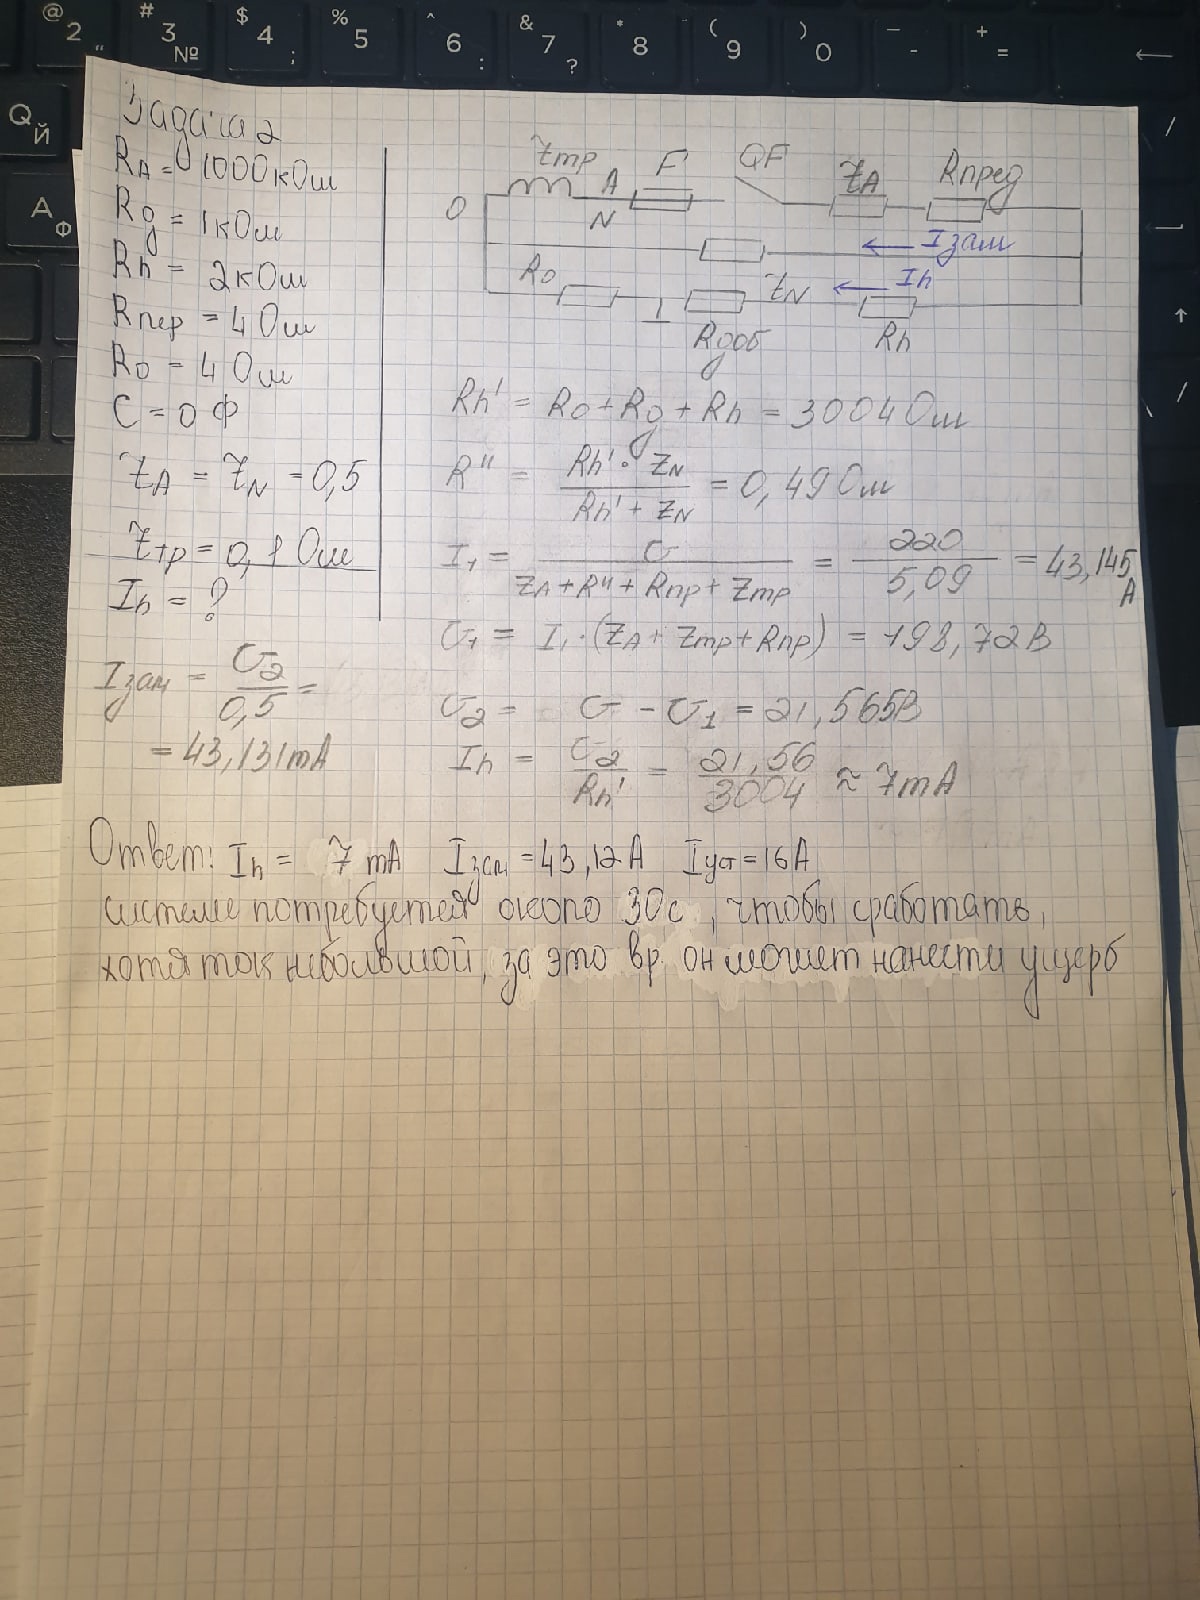 @ 2 "
# 3 №
$ 4 ;
% 5
^ 6 :
& 7 ?
* 8
( 9
) 0
_ -
+ =
Q Й
А Ф
Задача 2
RA = 1000 кОм
Rд = 1 кОм
Rh = 2 кОм
Rпер = 4 Ом
R0 = 4 Ом
C = 0 Ф
ZA = ZN = 0,5
Zтр = 0,1 Ом
Ih = ?
Iзам = U2 / 0,5 =
= 43,131 mA
Zтр A F QF ZA Rпред
0 N
Iзам
R0 ZN Ih
Rдоб Rh
Rh' = R0 + Rд + Rh = 3004 Ом
R'' = Rh' · ZN / Rh' + ZN = 0,49 Ом
I1 = U / ZA + R'' + Rпр + Zтр = 220 / 5,09 = 43,145 A
U1 = I1 · (ZA + Zтр + Rпр) = 198,72 В
U2 = U - U1 = 21,565 В
Ih = U2 / Rh' = 21,56 / 3004 ≈ 7 mA
Ответ: Ih = 7 mA Iзам = 43,12 А Iуст = 16 А
системе потребуется около 30 с, чтобы сработать,
хотя ток небольшой, за это вр. он может нанести ущерб